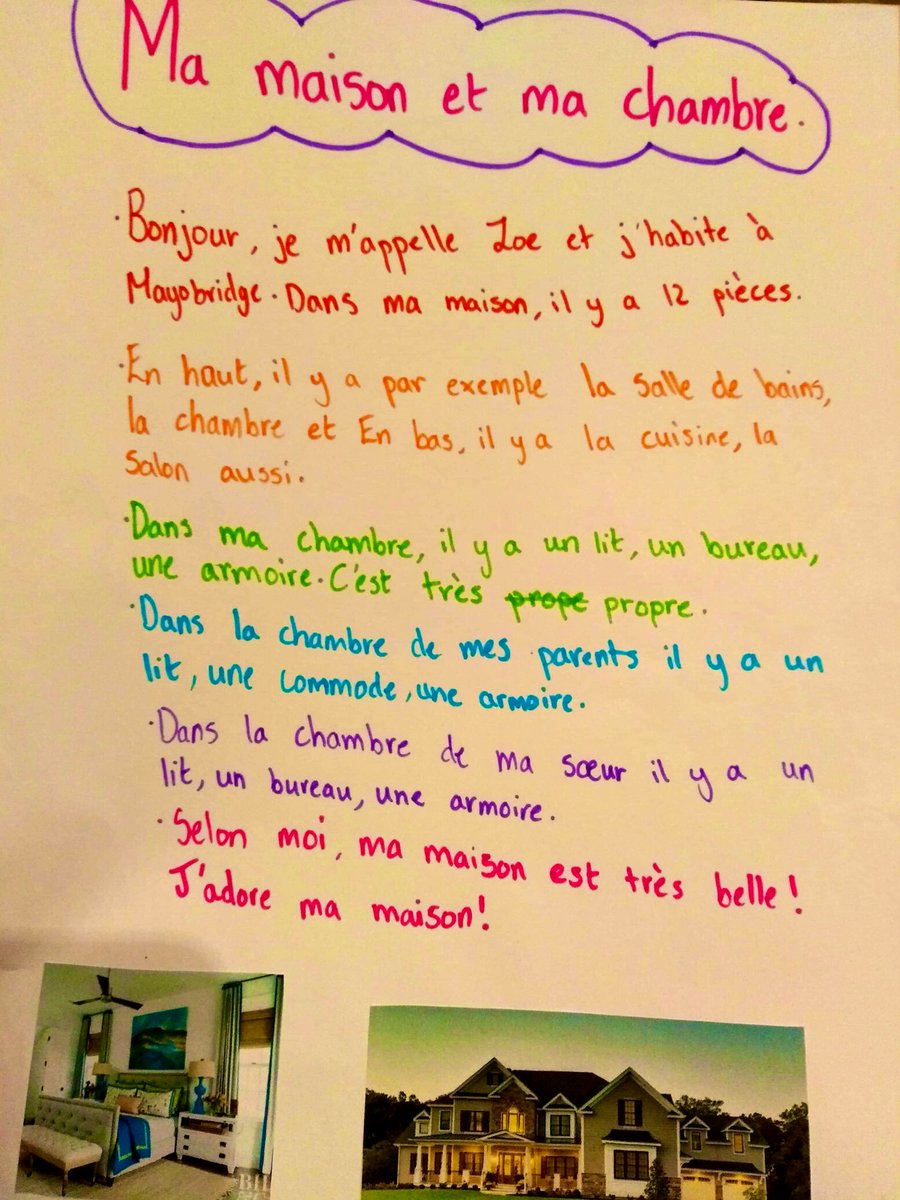 Ma maison et ma chambre.
·Bonjour, je m'appelle Zoe et j'habite à
Mayobridge. Dans ma maison, il y a 12 pièces.
·En haut, il y a par exemple la salle de bains,
la chambre et En bas, il y a la cuisine, la
Salon aussi.
·Dans ma chambre, il y a un lit, un bureau,
une armoire. C'est très prope propre.
·Dans la chambre de mes parents il y a un
lit, une commode, une armoire.
·Dans la chambre de ma sœur il y a un
lit, un bureau, une armoire.
·Selon moi, ma maison est très belle!
J'adore ma maison!